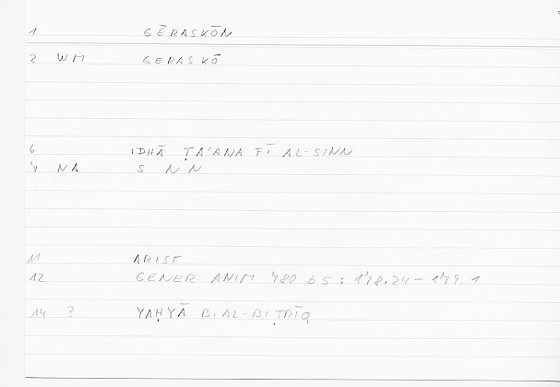 1 GĒRASKŌN
2 WM GERASKŌ
6 IDHĀ ṬAʿANA FĪ AL-SINN
7 NA S N N
11 ARIST
12 GENER ANIM 780 b5 : 178.24 – 179.1
14 ? YAḤYĀ B. AL-BIṬRĪQ